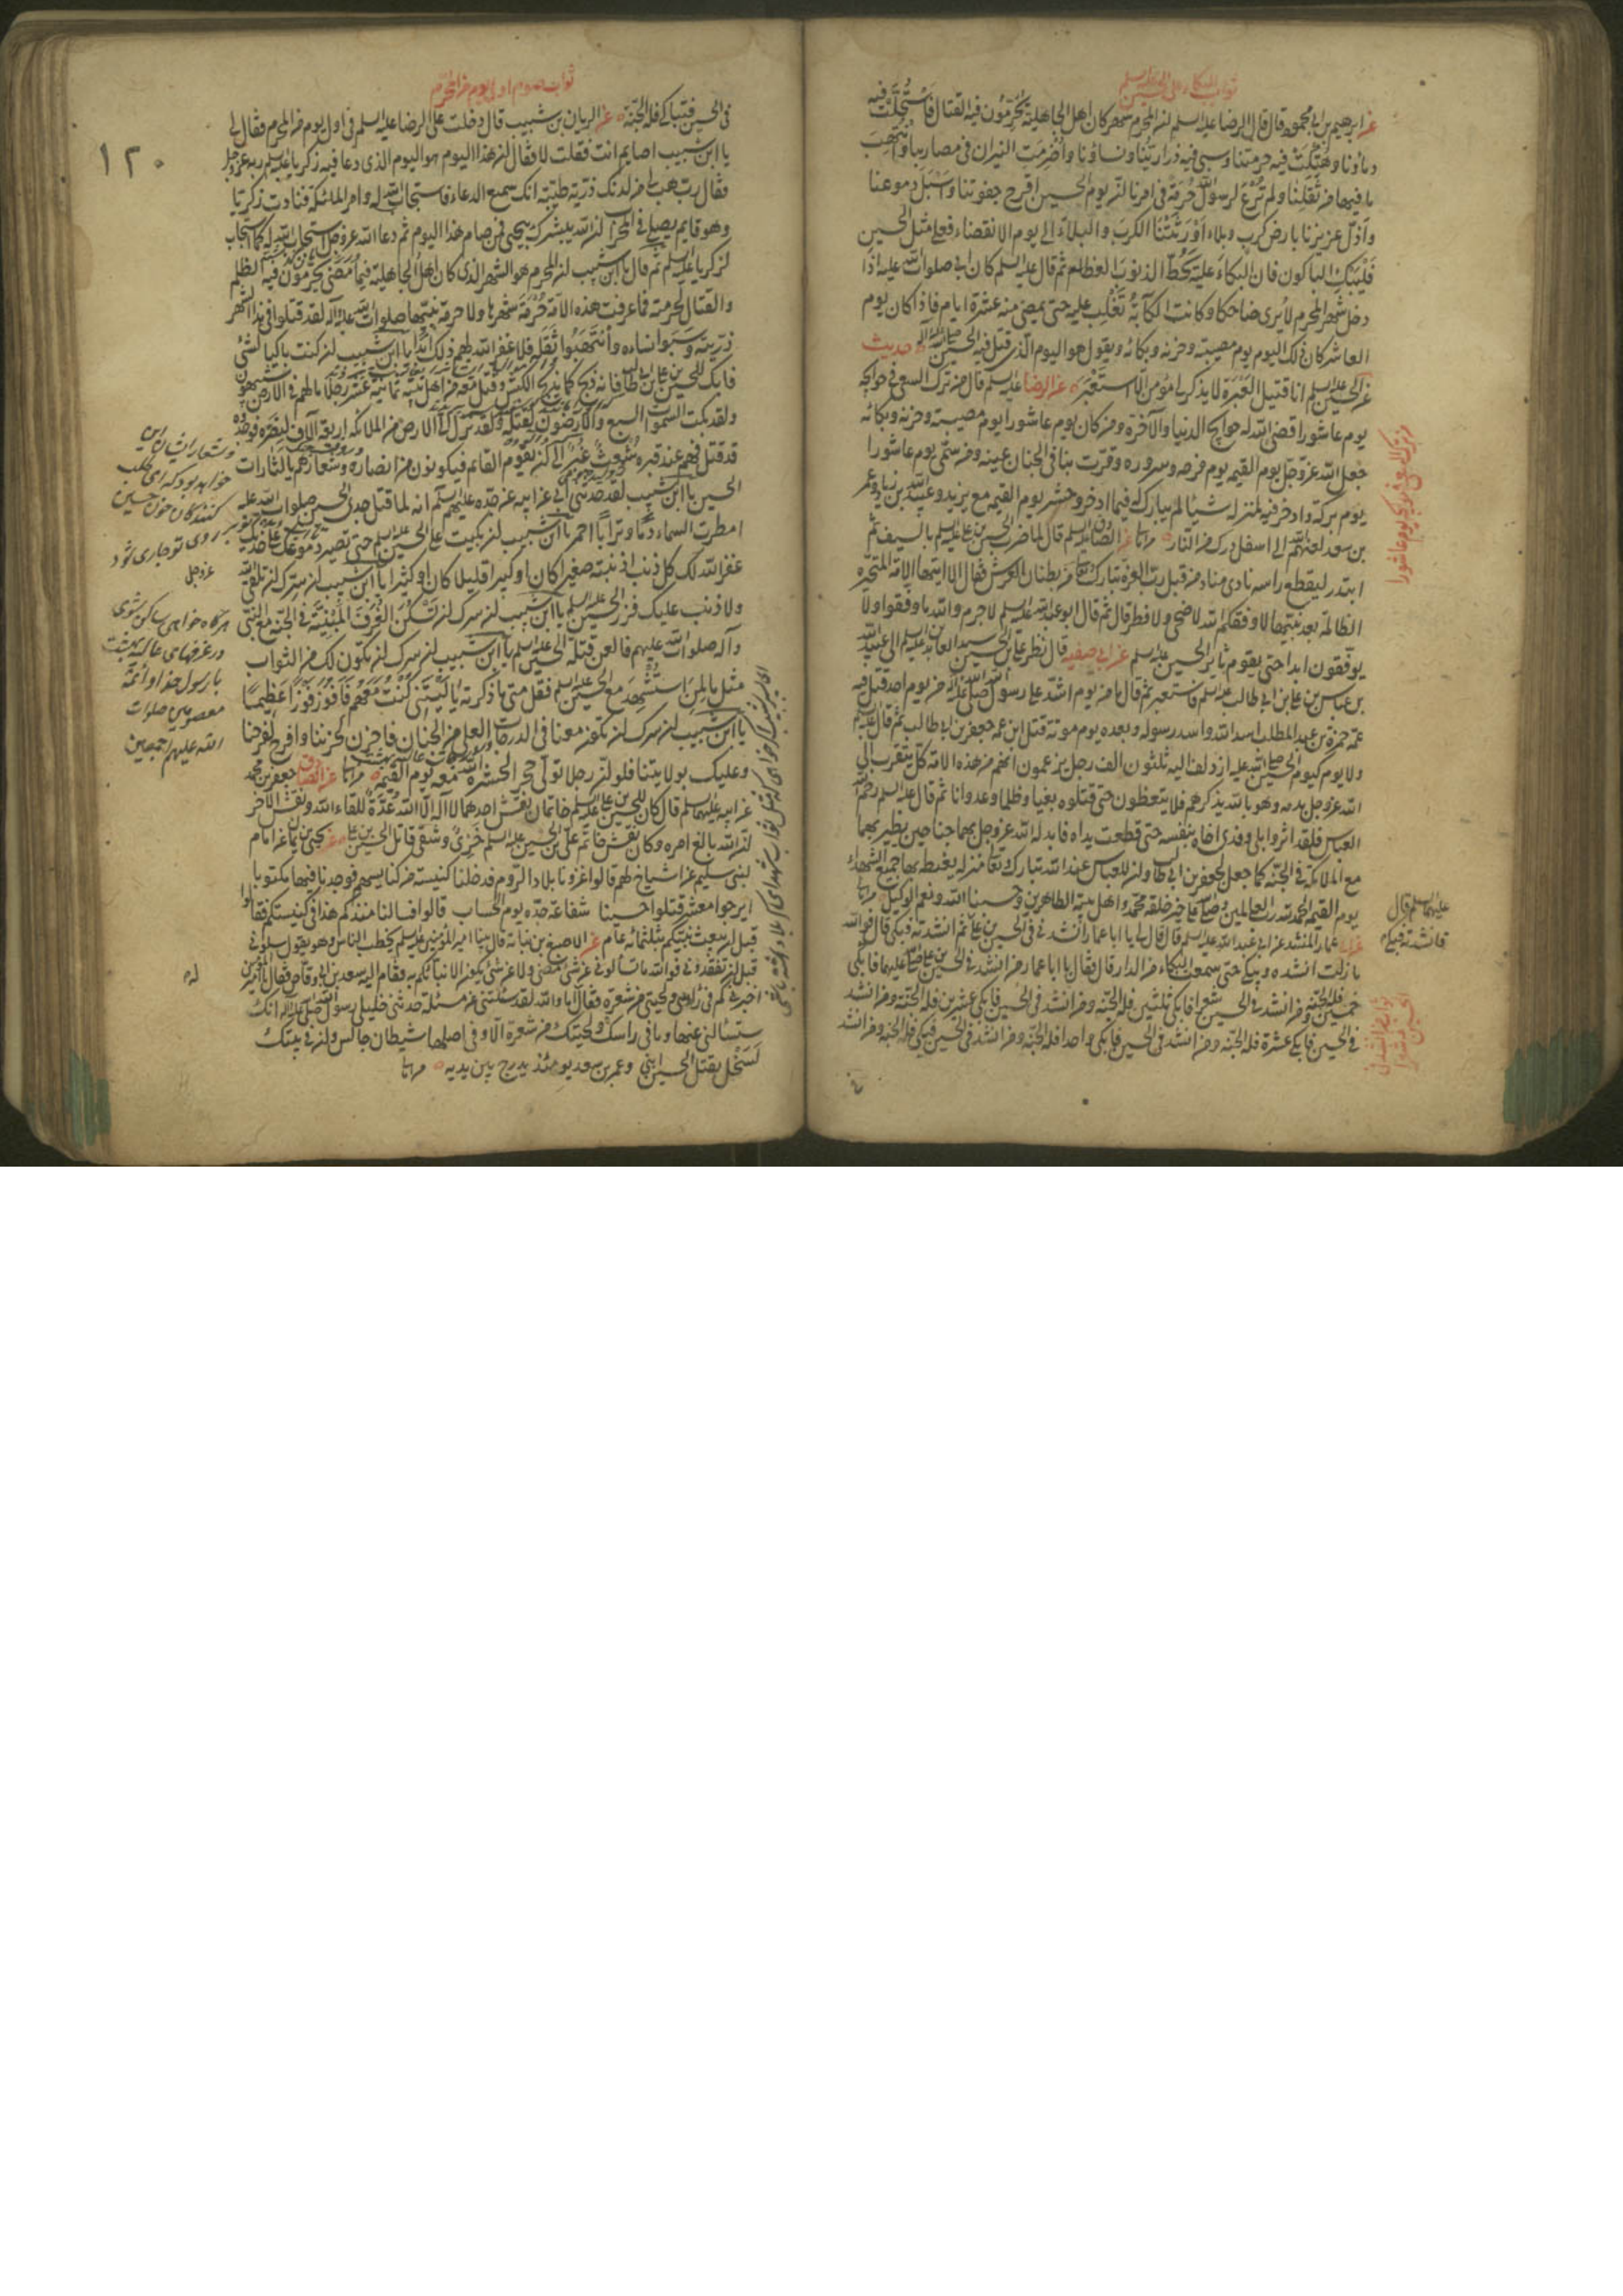 ثواب البكاء على الحسين عليه السلم
عن ابرهيم بن ابي محمود قال قال الرضا عليه السلم ان المحرم شهر كان اهل الجاهلية يحرمون فيه القتال فاستحلت فيه
دماؤنا وهتكت فيه حرمتنا وسبي فيه ذرارينا ونساؤنا واضرمت النيران في مضاربنا وانتهب
ما فيها من ثقلنا ولم ترع لرسول الله حرمة في امرنا ان يوم الحسين اقرح جفوننا واسبل دموعنا
واذل عزيزنا بارض كرب وبلاء اورثتنا الكرب والبلاء الى يوم الانقضاء فعلى مثل الحسين
فليبك الباكون فان البكاء عليه يحط الذنوب العظام ثم قال عليه السلم كان ابي صلوات الله عليه اذا
دخل شهر المحرم لا يرى ضاحكا وكانت الكآبة تغلب عليه حتى يمضي منه عشرة ايام فاذا كان يوم
العاشر كان ذلك اليوم يوم مصيبته وحزنه وبكائه ويقول هو اليوم الذي قتل فيه الحسين حديث
عن الحسين عليه السلم انا قتيل العبرة لا يذكرني مؤمن الا استعبر عن الرضا عليه السلم قال من ترك السعي في حوائجه
يوم عاشورا قضى الله له حوائج الدنيا والآخرة ومن كان يوم عاشورا يوم مصيبته وحزنه وبكائه
جعل الله عز وجل يوم القيمة يوم فرحه وسروره وقرت بنا في الجنان عينه ومن سمى يوم عاشورا
يوم بركة وادخر فيه لمنزله شيئا لم يبارك له فيما ادخر وحشر يوم القيمة مع يزيد وعبيد الله بن زياد وعمر
بن سعد لعنهم الله الى اسفل درك من النار عن الصادق عليه السلم قال لما ضرب الحسين بن علي عليه السلم بالسيف ثم
ابتدر ليقطع راسه نادى مناد من قبل رب العزة تبارك وتعالى من بطنان العرش فقال الا ايتها الامة المتحيرة
الظالمة بعد نبيها لا وفقكم الله لاضحى ولا فطر قال ثم قال ابو عبد الله عليه السلم لا جرم والله ما وفقوا ولا
يوفقون ابدا حتى يقوم ثائر الحسين عليه السلم عن ابي صفيه قال نظر علي بن الحسين سيد العابدين عليه السلم الى عبيد الله
بن عباس بن علي بن ابي طالب عليه السلم فاستعبر ثم قال ما من يوم اشد على رسول الله صلى الله عليه وآله من يوم احد قتل فيه
عمه حمزة بن عبد المطلب اسد الله واسد رسوله وبعده يوم موتة قتل ابن عمه جعفر بن ابي طالب ثم قال عليه السلم
ولا يوم كيوم الحسين صلى الله عليه ازدلف اليه ثلثون الف رجل يزعمون انهم من هذه الامة كل يتقرب الى
الله عز وجل بدمه وهو بالله يذكرهم فلا يتعظون حتى قتلوه بغيا وظلما وعدوانا ثم قال عليه السلم رحم الله
العباس فلقد اثر وابلى وفدى اخاه بنفسه حتى قطعت يداه فابدله الله عز وجل بهما جناحين يطير بهما
مع الملائكة في الجنة كما جعل لجعفر بن ابي طالب وان للعباس عند الله تبارك وتعالى منزلة يغبطه بها جميع الشهداء
يوم القيمة الحمد لله رب العالمين وصلى على خير خلقه محمد واهل بيته الطاهرين وحسبنا الله ونعم الوكيل
عن ابي عمار المنشد عن ابي عبد الله عليه السلم قال قال لي يا ابا عمار انشدني في الحسين بن علي ثم انشدته فبكى قال فوالله
ما زلت انشده ويبكي حتى سمعت البكاء من الدار قال فقال يا ابا عمار من انشد في الحسين بن علي فابكى
خمسين فله الجنة ومن انشد في الحسين شعرا فابكى ثلثين فله الجنة ومن انشد في الحسين فابكى عشرين فله الجنة ومن انشد
في الحسين فابكى عشرة فله الجنة ومن انشد في الحسين فابكى واحدا فله الجنة ومن انشد في الحسين فبكى فله الجنة ومن انشد
من ترك السعي في حوائجه يوم عاشورا
عليهما السلم قال
فانشدته فبكى
ثواب من انشد في
الحسين شعرا
ثواب صوم اول يوم من المحرم
١٢٠
في الحسين فتباكى فله الجنة عن الريان بن شبيب قال دخلت على الرضا عليه السلم في اول يوم من المحرم فقال لي
يا ابن شبيب اصايم انت فقلت لا فقال ان هذا اليوم هو اليوم الذي دعا فيه زكريا عليه السلم ربه عز وجل
فقال رب هب لي من لدنك ذرية طيبة انك سميع الدعاء فاستجاب الله له وامر الملائكة فنادت زكريا
وهو قايم يصلي في المحراب ان الله يبشرك بيحيى فمن صام هذا اليوم ثم دعا الله عز وجل استجاب الله له كما استجاب
لزكريا عليه السلم ثم قال يا ابن شبيب ان المحرم هو الشهر الذي كان اهل الجاهلية فيما مضى يحرمون فيه الظلم
والقتال لحرمته فما عرفت هذه الامة حرمة شهرها ولا حرمة نبيها صلوات الله عليه وآله لقد قتلوا في هذا الشهر
ذريته وسبوا نساءه وانتهبوا ثقله فلا غفر الله لهم ذلك ابدا يا ابن شبيب ان كنت باكيا لشئ
فابك للحسين بن علي بن ابي طالب فانه ذبح كما يذبح الكبش وقتل معه من اهل بيته ثمانية عشر رجلا ما لهم في الارض شبيهون
ولقد بكت السموات السبع والارضون لقتله ولقد نزل الى الارض من الملائكة اربعة آلاف لينصروه فوجدوه
قد قتل فهم عند قبره شعث غبر الى ان يقوم القائم فيكونون من انصاره وشعارهم يا لثارات
الحسين يا ابن شبيب لقد حدثني ابي عن ابيه عن جده عليهم السلم انه لما قتل جدي الحسين صلوات الله عليه
امطرت السماء دما وترابا احمر يا ابن شبيب ان بكيت على الحسين عليه السلم حتى تصير دموعك على خديك
غفر الله لك كل ذنب اذنبته صغيرا كان او كبيرا قليلا كان او كثيرا يا ابن شبيب ان سرك ان تلقى الله
ولا ذنب عليك فزر الحسين عليه السلم يا ابن شبيب ان سرك ان تسكن الغرف المبنية في الجنة مع النبي
وآله صلوات الله عليهم فالعن قتلة الحسين عليه السلم يا ابن شبيب ان سرك ان تكون لك من الثواب
مثل ما لمن استشهد مع الحسين عليه السلم فقل متى ما ذكرته يا ليتني كنت معهم فافوز فوزا عظيما
يا ابن شبيب ان سرك ان تكون معنا في الدرجات العلى من الجنان فاحزن لحزننا وافرح لفرحنا
وعليك بولايتنا فلو ان رجلا تولى حجرا لحشره الله معه يوم القيمة عن الصادق جعفر بن محمد
عن ابيه عليهما السلم قال كان للحسين بن علي عليه السلم خاتمان نقش احدهما لا اله الا الله عدة للقاء الله ونقش الآخر
ان الله بالغ امره وكان نقش خاتم علي بن الحسين عليه السلم خزي وشقي قاتل الحسين بن علي عن يحيى بن يمان عن امام
لبني سليم عن اشياخ لهم قالوا غزونا بلاد الروم فدخلنا كنيسة من كنايسهم فوجدنا فيها مكتوبا
ايرجوا معشر قتلوا حسينا شفاعة جده يوم الحساب قالوا فسالنا منذ كم هذا في كنيستكم فقالوا
قبل ان يبعث نبيكم بثلثمائة عام عن الاصبغ بن نباتة قال بينا امير المؤمنين عليه السلم يخطب الناس وهو يقول سلوني
قبل ان تفقدوني فوالله ما تسالوني عن شئ مضى ولا عن شئ يكون الا نباتكم به فقام اليه سعد بن ابي وقاص فقال يا امير المؤمنين
اخبرني كم في راسي ولحيتي من شعرة فقال اما والله لقد سئلتني عن مسئلة حدثني خليلي رسول الله صلى الله عليه وآله انك
ستسالني عنها وما في راسك ولحيتك من شعرة الا وفي اصلها شيطان جالس وان في بيتك
لسخل يقتل الحسين ابني وعمر بن سعد يومئذ يدرج بين يديه
وشعار ايشان اين
خواهد بود كه اى طلب
كنندگان خون حسين
بر روى تو جارى شود
عز وجل
هرگاه خواهى ساكن شوى
در غرفهاى عاليه بهشت
با رسول خدا و ائمه
معصومين صلوات
الله عليهم اجمعين